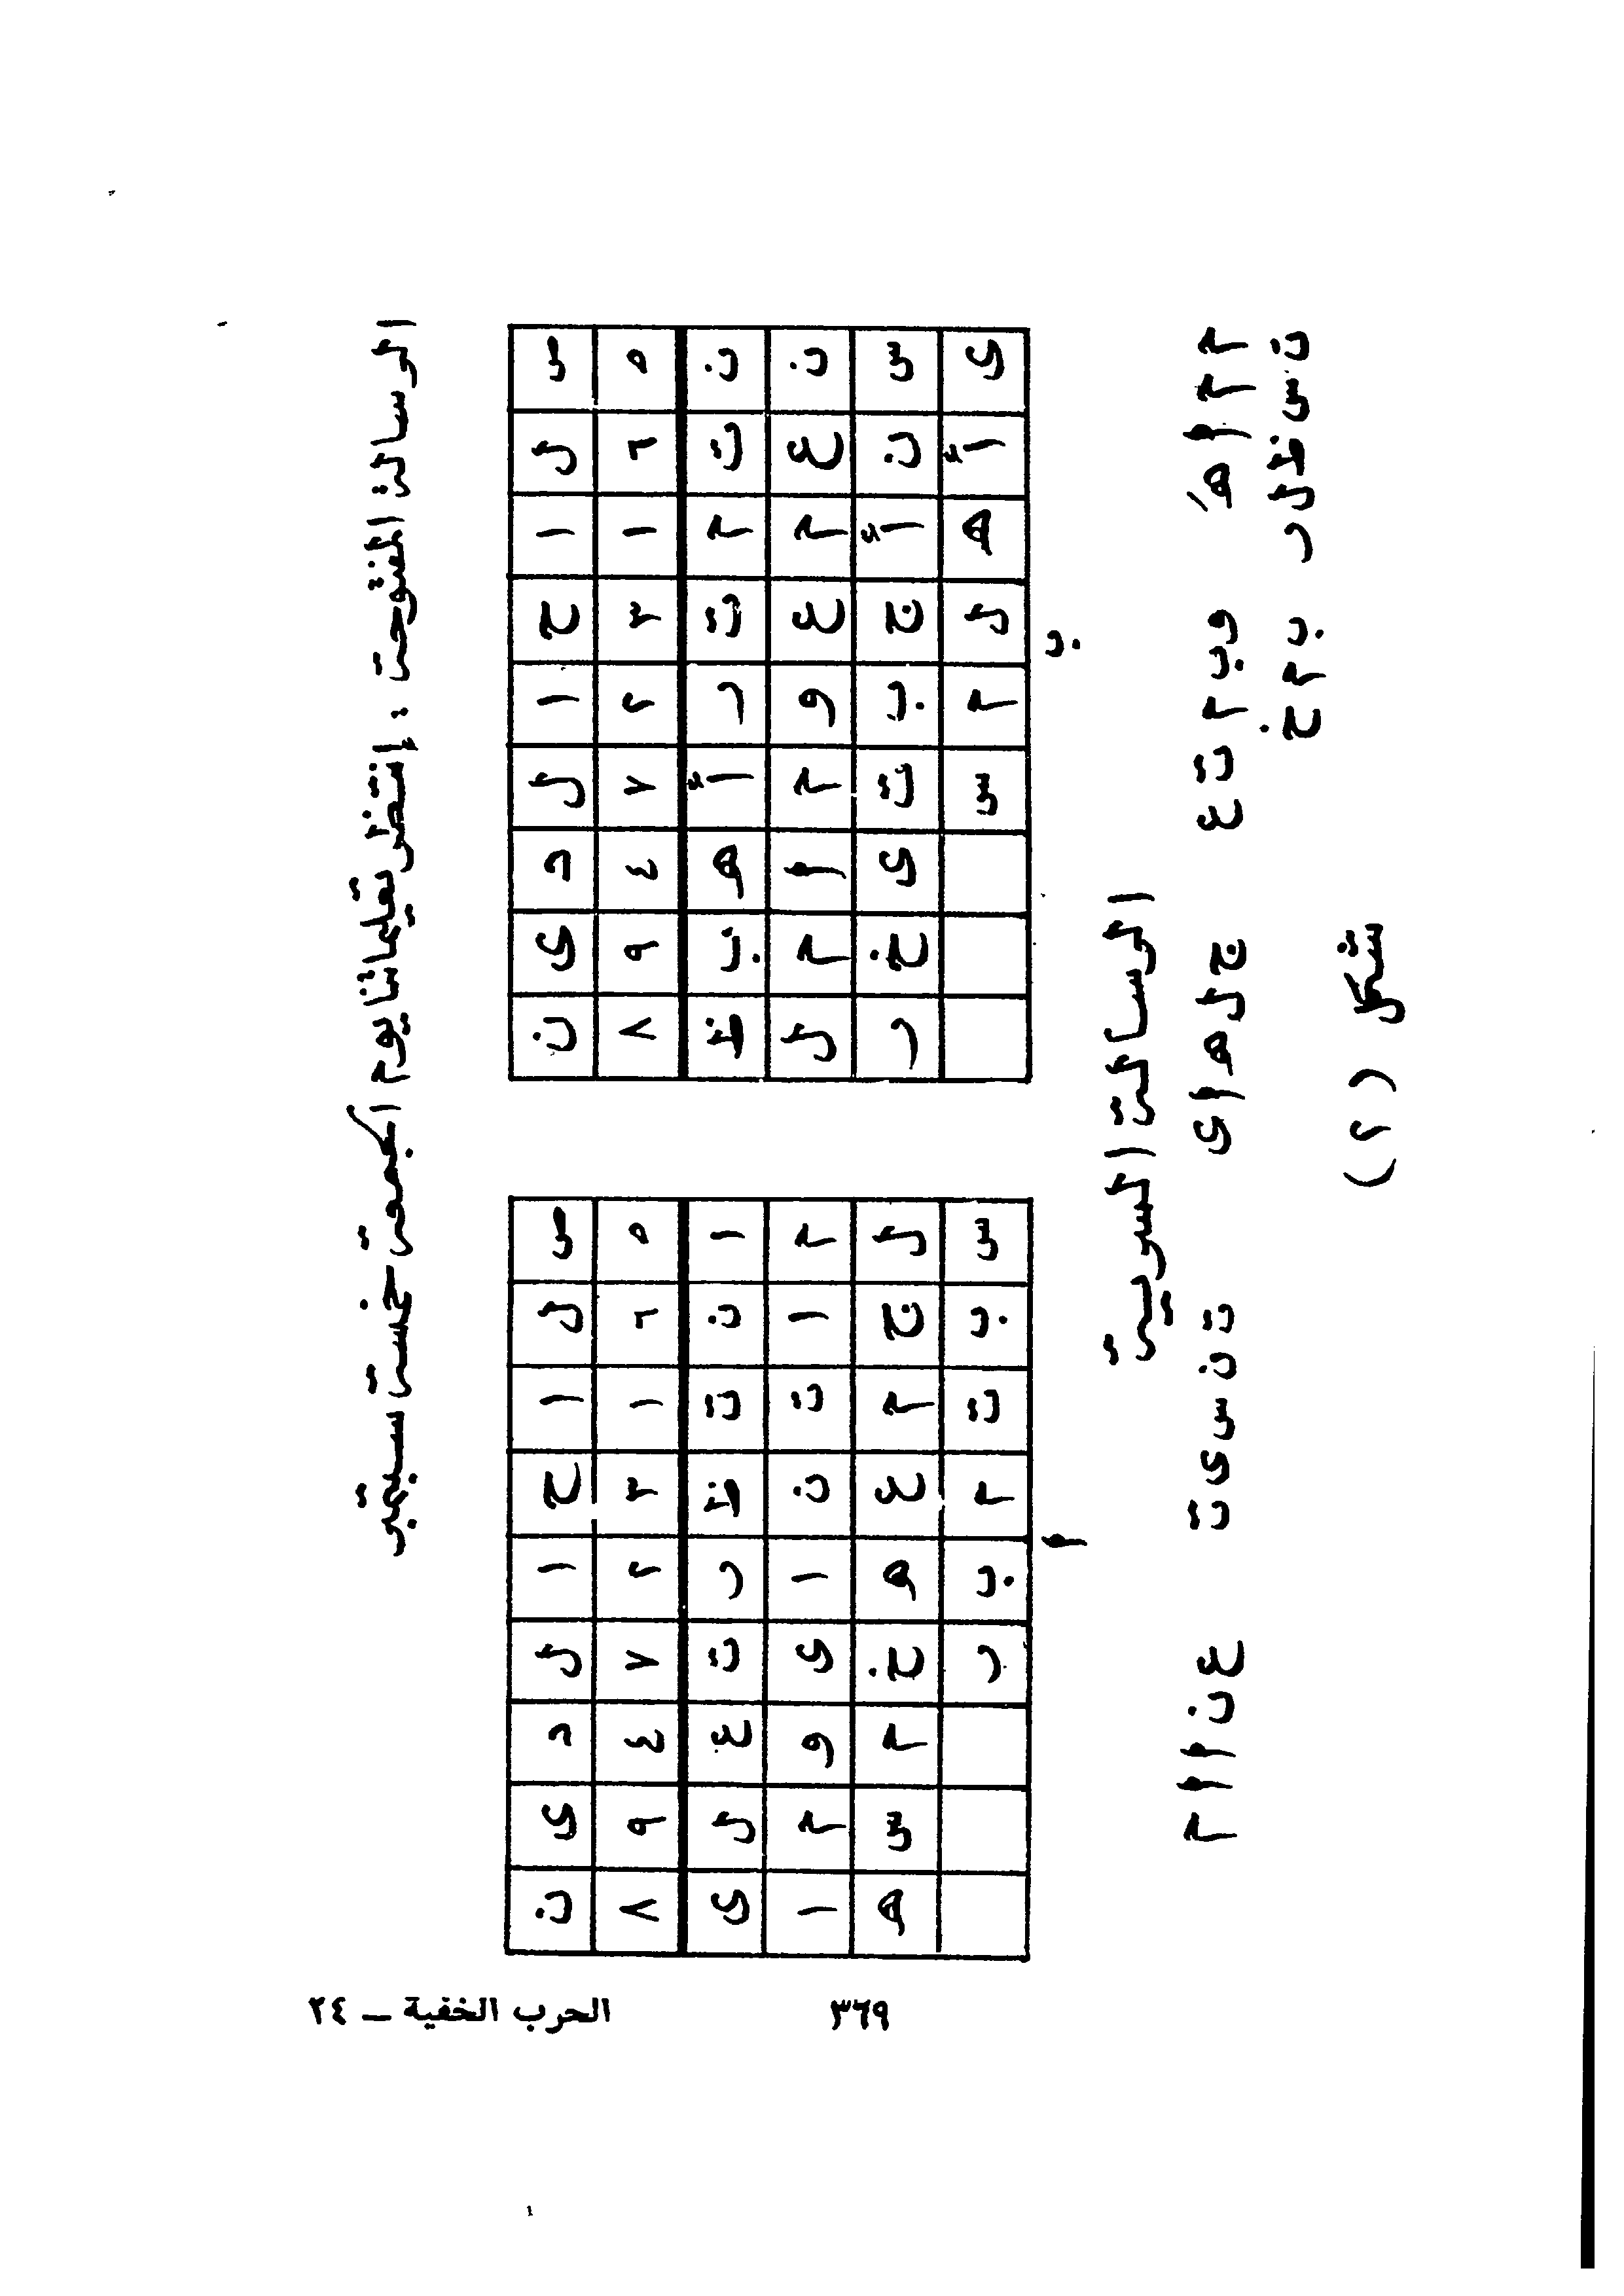 الرسالة المفتوحة : إنتظر تعليماتنا يوم الجمعة خمسة سبتمبر
ص ل ا ح ا ل د ى ن
٥ ٦ ١ ٣ ٢ ٧ ٤ ٩ ٨
ن ت م ت ر أ ه ب ظ
ن ع م ع و م أ م ل
س ن أ ج ب ت ى خ ر
ى أ ه ل م س
ب
ص ل ا ح ا ل د ى ن
٥ ٦ ١ ٣ ٢ ٧ ٤ ٩ ٨
ا ن ت ظ ر ت ع ل ى
م ا ت ن ا ى و م ا
ل ج م ع ه خ م س ه
س ب ت م ب ر
أ
الرسالة السرية
م م أ هـ ر و ب م ت ع ج ل ه أ ى ت ن س ى ت ع ن أ أ م
ن س ظ ل ر ب م خ
شكل (٢)
٣٦٩
الحرب الخفية ــ ٢٤